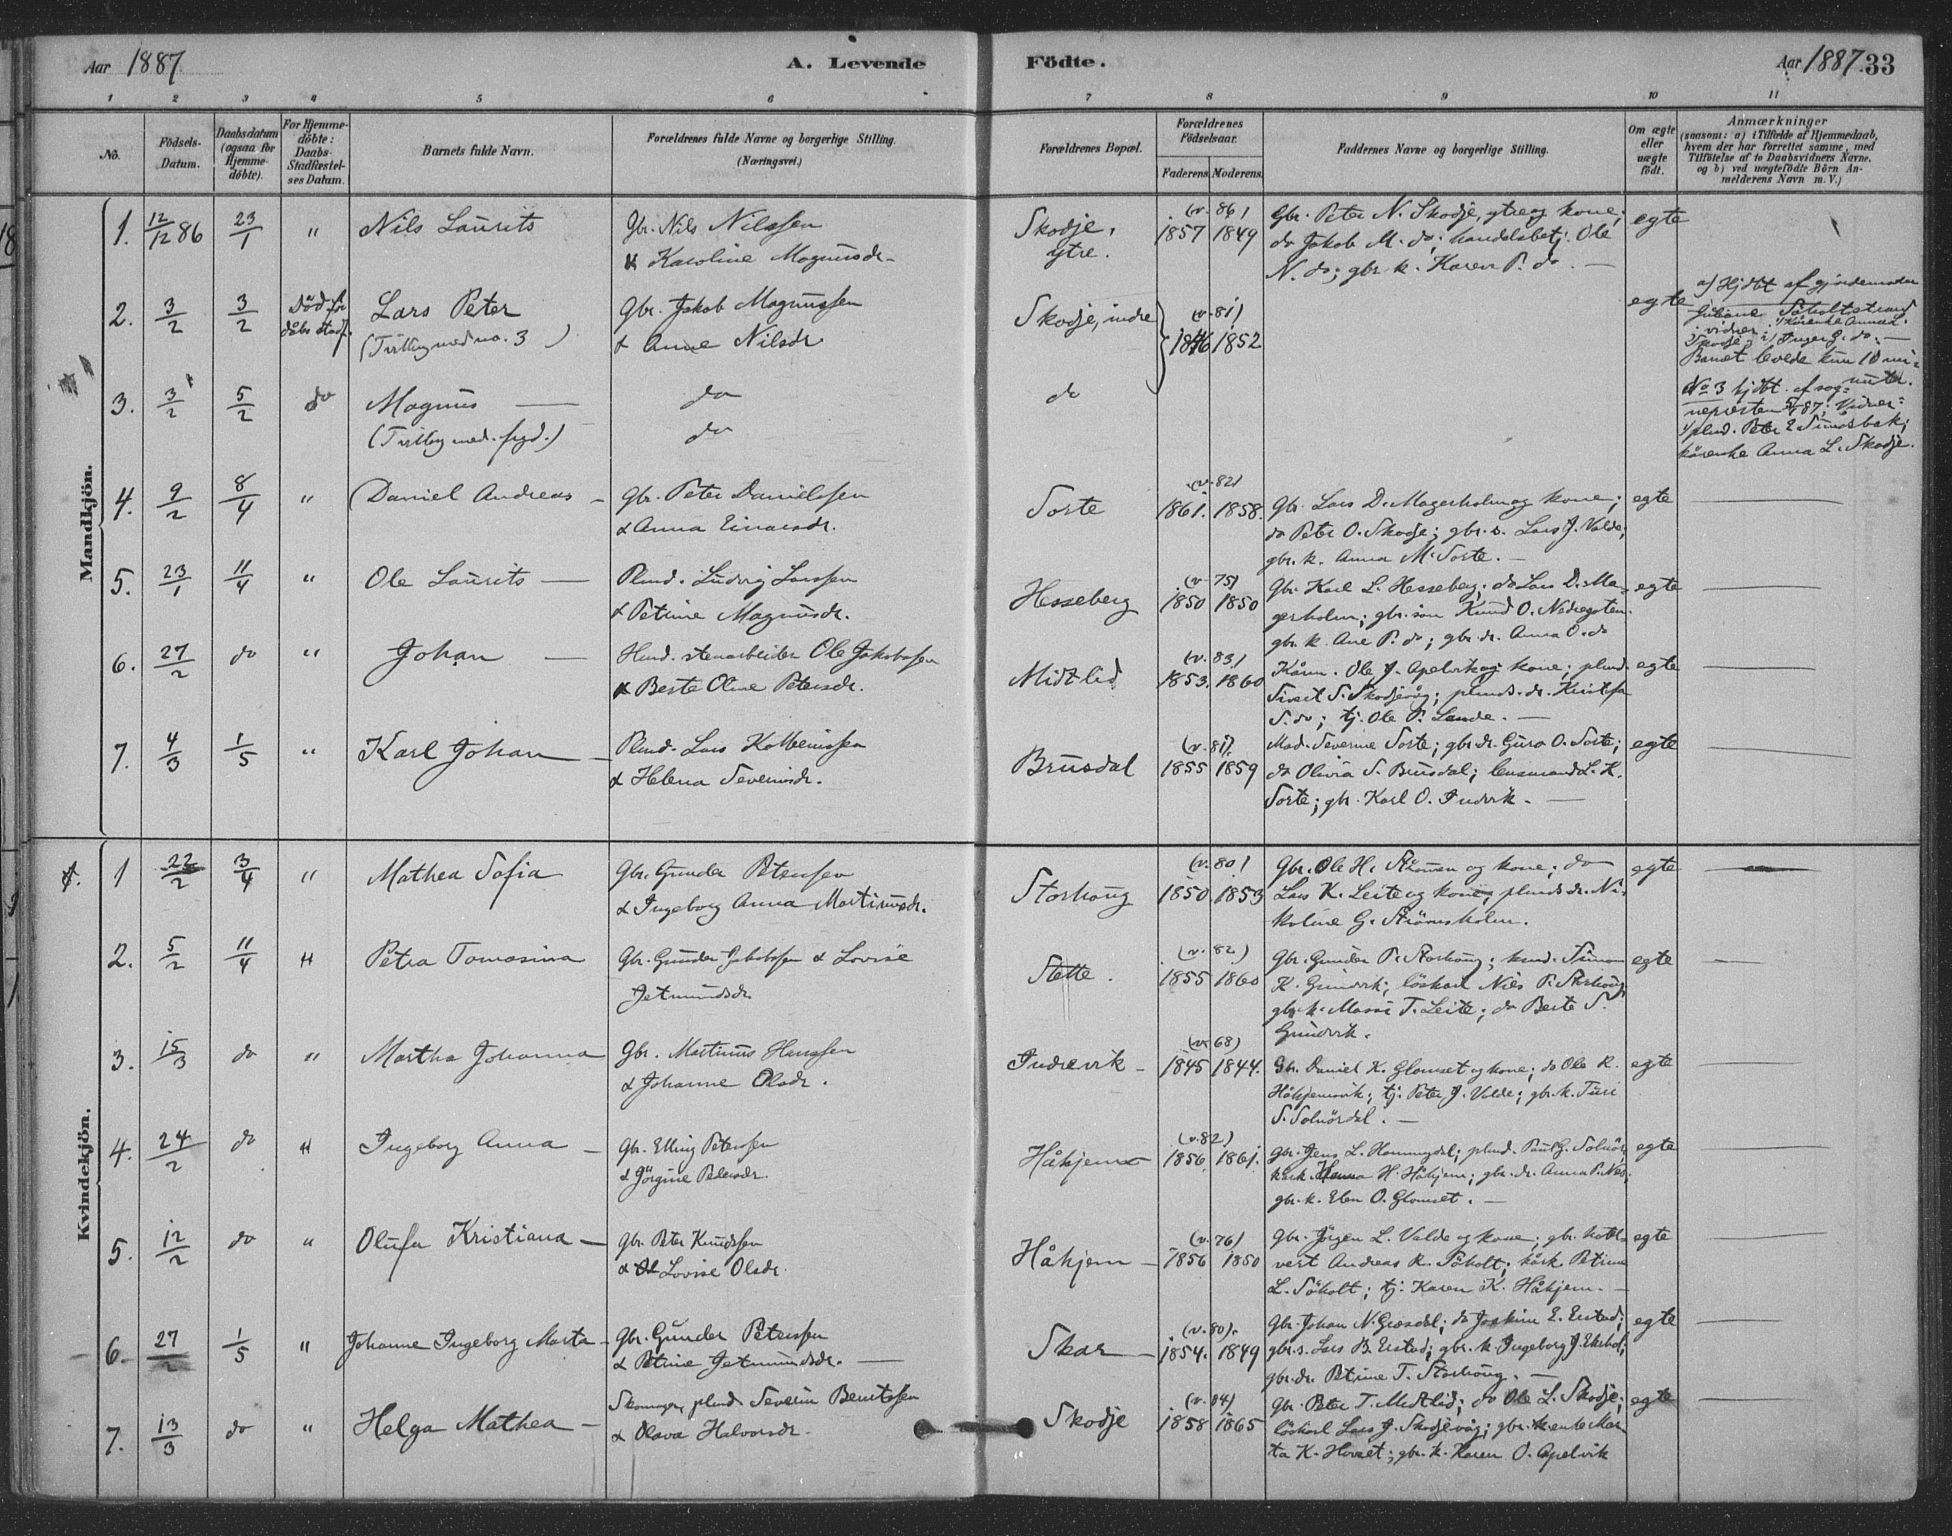 Aar 1887
A. Levende
Födte.
Aar 1887. 33
1 2 3 4 5 6 7 8 9 10 11
No.
Födsels-
Datum.
Daabsdatum
(ogsaa for
Hjemme-
döbte).
For Hjemme-
döbte:
Daabs-
Stadfæstel-
ses Datum.
Barnets fulde Navn.
Forældrenes fulde Navne og borgerlige Stilling.
(Næringsvei.)
Forældrenes Bopæl.
Forældrenes
Födselsaar.
Faderens. Moderens.
Faddernes Navne og borgerlige Stilling.
Om ægte
eller
uægte
födt.
Anmærkninger
(saasom: a) i Tilfælde af Hjemmedaab,
hvem der har forrettet samme, med
Tilföielse af to Daabsvidners Navne,
og b) ved uægtefödte Börn An-
melderens Navn m. V.)
Mandkjön.
1. 12/12 86 23/1 " Nils Laurits
Gbr. Nils Nilssen
Karoline Magnusdr.
Skodje, ytre.
(v. 86)
1857 1849
Gbr. Peter N. Skodje, ytre og kone;
do Jakob M. do; handelsbetj. Ole
N. do; gbr. k. Karen P. do. —
egte
2. 3/2 3/2 Lars Peter
(Tvilling med no. 3)
Gbr. Jakob Magnussen
& Anne Nilsdr.
Skodje, indre
(v. 81)
1846 1852
egte
a) Hjdbt af gjordemoder
Barnet levede kun 10 mi-
nuter.
3. 3/2 5/2 do Magnus —
(Tvilling med. frgd.)
do
do
do
No 3 hjdbt. af sog-
nepresten 5/2 87. Vidner:
Anna L. Skodje.
4. 9/2 8/4 " Daniel Andreas —
Gbr. Peter Danielssen
& Anna Einarsdr.
Sorte
(v. 82)
1861. 1858.
Gbr. Lars D. Magerholm og kone;
do Peter O. Skodje; gbr. s. Lars J. Valde;
gbr. k. Anna M. Sorte. —
egte
5. 23/1 11/4 " Ole Laurits —
Plmd. Ludvig Larssen
& Petrine Magnusdr.
Hesseberg
(v. 75)
1850 1850
Gbr. Karl L. Hesseberg; do Lars D. Ma-
gerholm; gbr. sön Knud O. Nedregoten
gbr. k. Ane P. do; gbr. dr. Anna O. do
egte
6. 27/2 do " Johan —
Husmd. stenarbeider Ole Jakobssen
Berte Oline Petersdr.
Midtlid
(v. 83)
1853. 1860
Kårm. Ole J. Apelvik og kone; plmd.
Sivert S. Skodjevåg; plmds. dr. Kristofa
S. do; tj. Ole P. Lande. —
egte
7. 4/3 1/5 " Karl Johan —
Plmd. Lars Kolbeinssen
& Helena Severinsdr.
Brusdal
(v. 81)
1855 1859
Mad. Severine Sorte; gbr. dr. Guro O. Sorte;
do Olivia S. Brusdal; lensmand L. K.
Sorte; gbr. Karl O. Indrevik. —
egte
Kvindekjön.
1 22/2 3/4 " Mathea Sofia
Gbr. Gunder Petersen
& Ingeborg Anna Martinusdr.
Storhoug
(v. 80)
1850. 1853
Gbr. Ole H. Strömmen og kone; do
Lars K. Leite og kone; plmds. dr. Ni-
koline G. Strömsholm.
egte
2. 5/2 11/4 " Petra Tomasina
Gbr. Gunder Jakobssen & Lovise
Jetmundsdr.
Stette.
(v. 82)
1855 1860
Gbr. Gunder P. Storhoug;
Nils P. Storhoug
gbr. k. Massi T. Leite; do Berte S.
egte
3. 15/3 do " Martha Johanna
Gbr. Martinus Hanssen
& Johanne Olsdr.
Indrevik —
(v. 68)
1845 1844.
Gbr. Daniel K. Glomset og kone; do Ole R.
Håhjemsvik; tj. Peter J. Valde; gbr. k. Turi
S. Solnördal. —
egte
4. 24/2 do " Ingeborg Anna —
Gbr. Elling Peterssen
& Jörgine Pedersdr.
Håhjem
(v. 82)
1856 1861.
Gbr. Jens L. Hammezdal; plmd. Paul G. Solnör;
Hanna H. Håhjem; gbr. dr. Anna P. Nes;
gbr. k. Elen O. Glomset. —
egte
5. 12/2 do " Olufa Kristiana —
Gbr. Peter Knudssen
& Lovise Olsdr.
Håhjem —
(v. 76)
1856 1850
Gbr. Jörgen L. Valde og kone;
Andreas R. Söholt; kårk. Petrine
L. Söholt; tj. Karen K. Håhjem. —
egte
6. 27/2 1/5 " Johanne Ingeborg Marta —
Gbr. Gunder Peterssen
& Petrine Jetmundsdr. —
Skar —
(v. 80).
1854. 1849
Gbr. Johan N. Græsdal; do Joakim E. Eistad;
gbr. s. Lars B. Eistad; gbr. k. Ingeborg J.
gbr. dr. Petrine T. Storhoug. —
egte
7. 13/3 do " Helga Mathea —
Skomager, plmd. Severin Berntssen
& Olava Halvorsdr.
Skodje
(v. 84)
1858 1865
Gbr. Peter T. Medtlid; do Ole L. Skodje;
löskarl Lars J. Skodjevåg; gbr. enke Mar-
ta K. Hovset; gbr. k. Karen O. Apelvik
egte